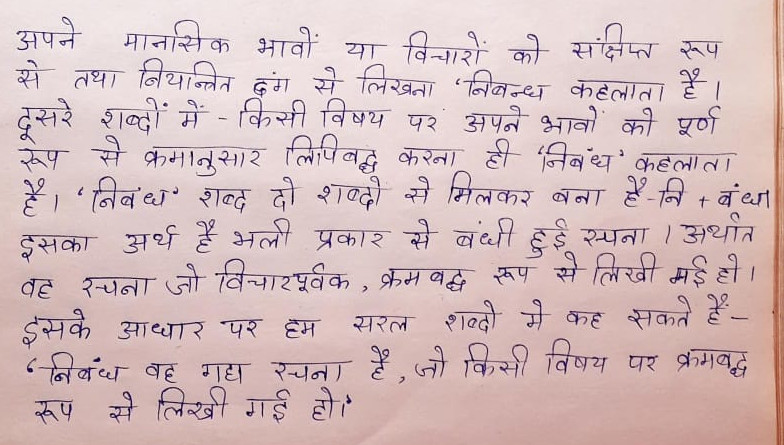 अपने मानसिक भावों या विचारों को संक्षिप्त रूप
से तथा नियन्त्रित ढंग से लिखना 'निबन्ध कहलाता है।
दूसरे शब्दों में - किसी विषय पर अपने भावों को पूर्ण
रूप से क्रमानुसार लिपिबद्ध करना ही 'निबंध' कहलाता
है। 'निबंध' शब्द दो शब्दो से मिलकर बना है - नि + बंध।
इसका अर्थ है भली प्रकार से बंधी हुई रचना । अर्थात
वह रचना जो विचारपूर्वक, क्रमबद्ध रूप से लिखी गई हो।
इसके आधार पर हम सरल शब्दो मे कह सकते हैं -
'निबंध वह गद्य रचना है, जो किसी विषय पर क्रमबद्ध
रूप से लिखी गई हो।'